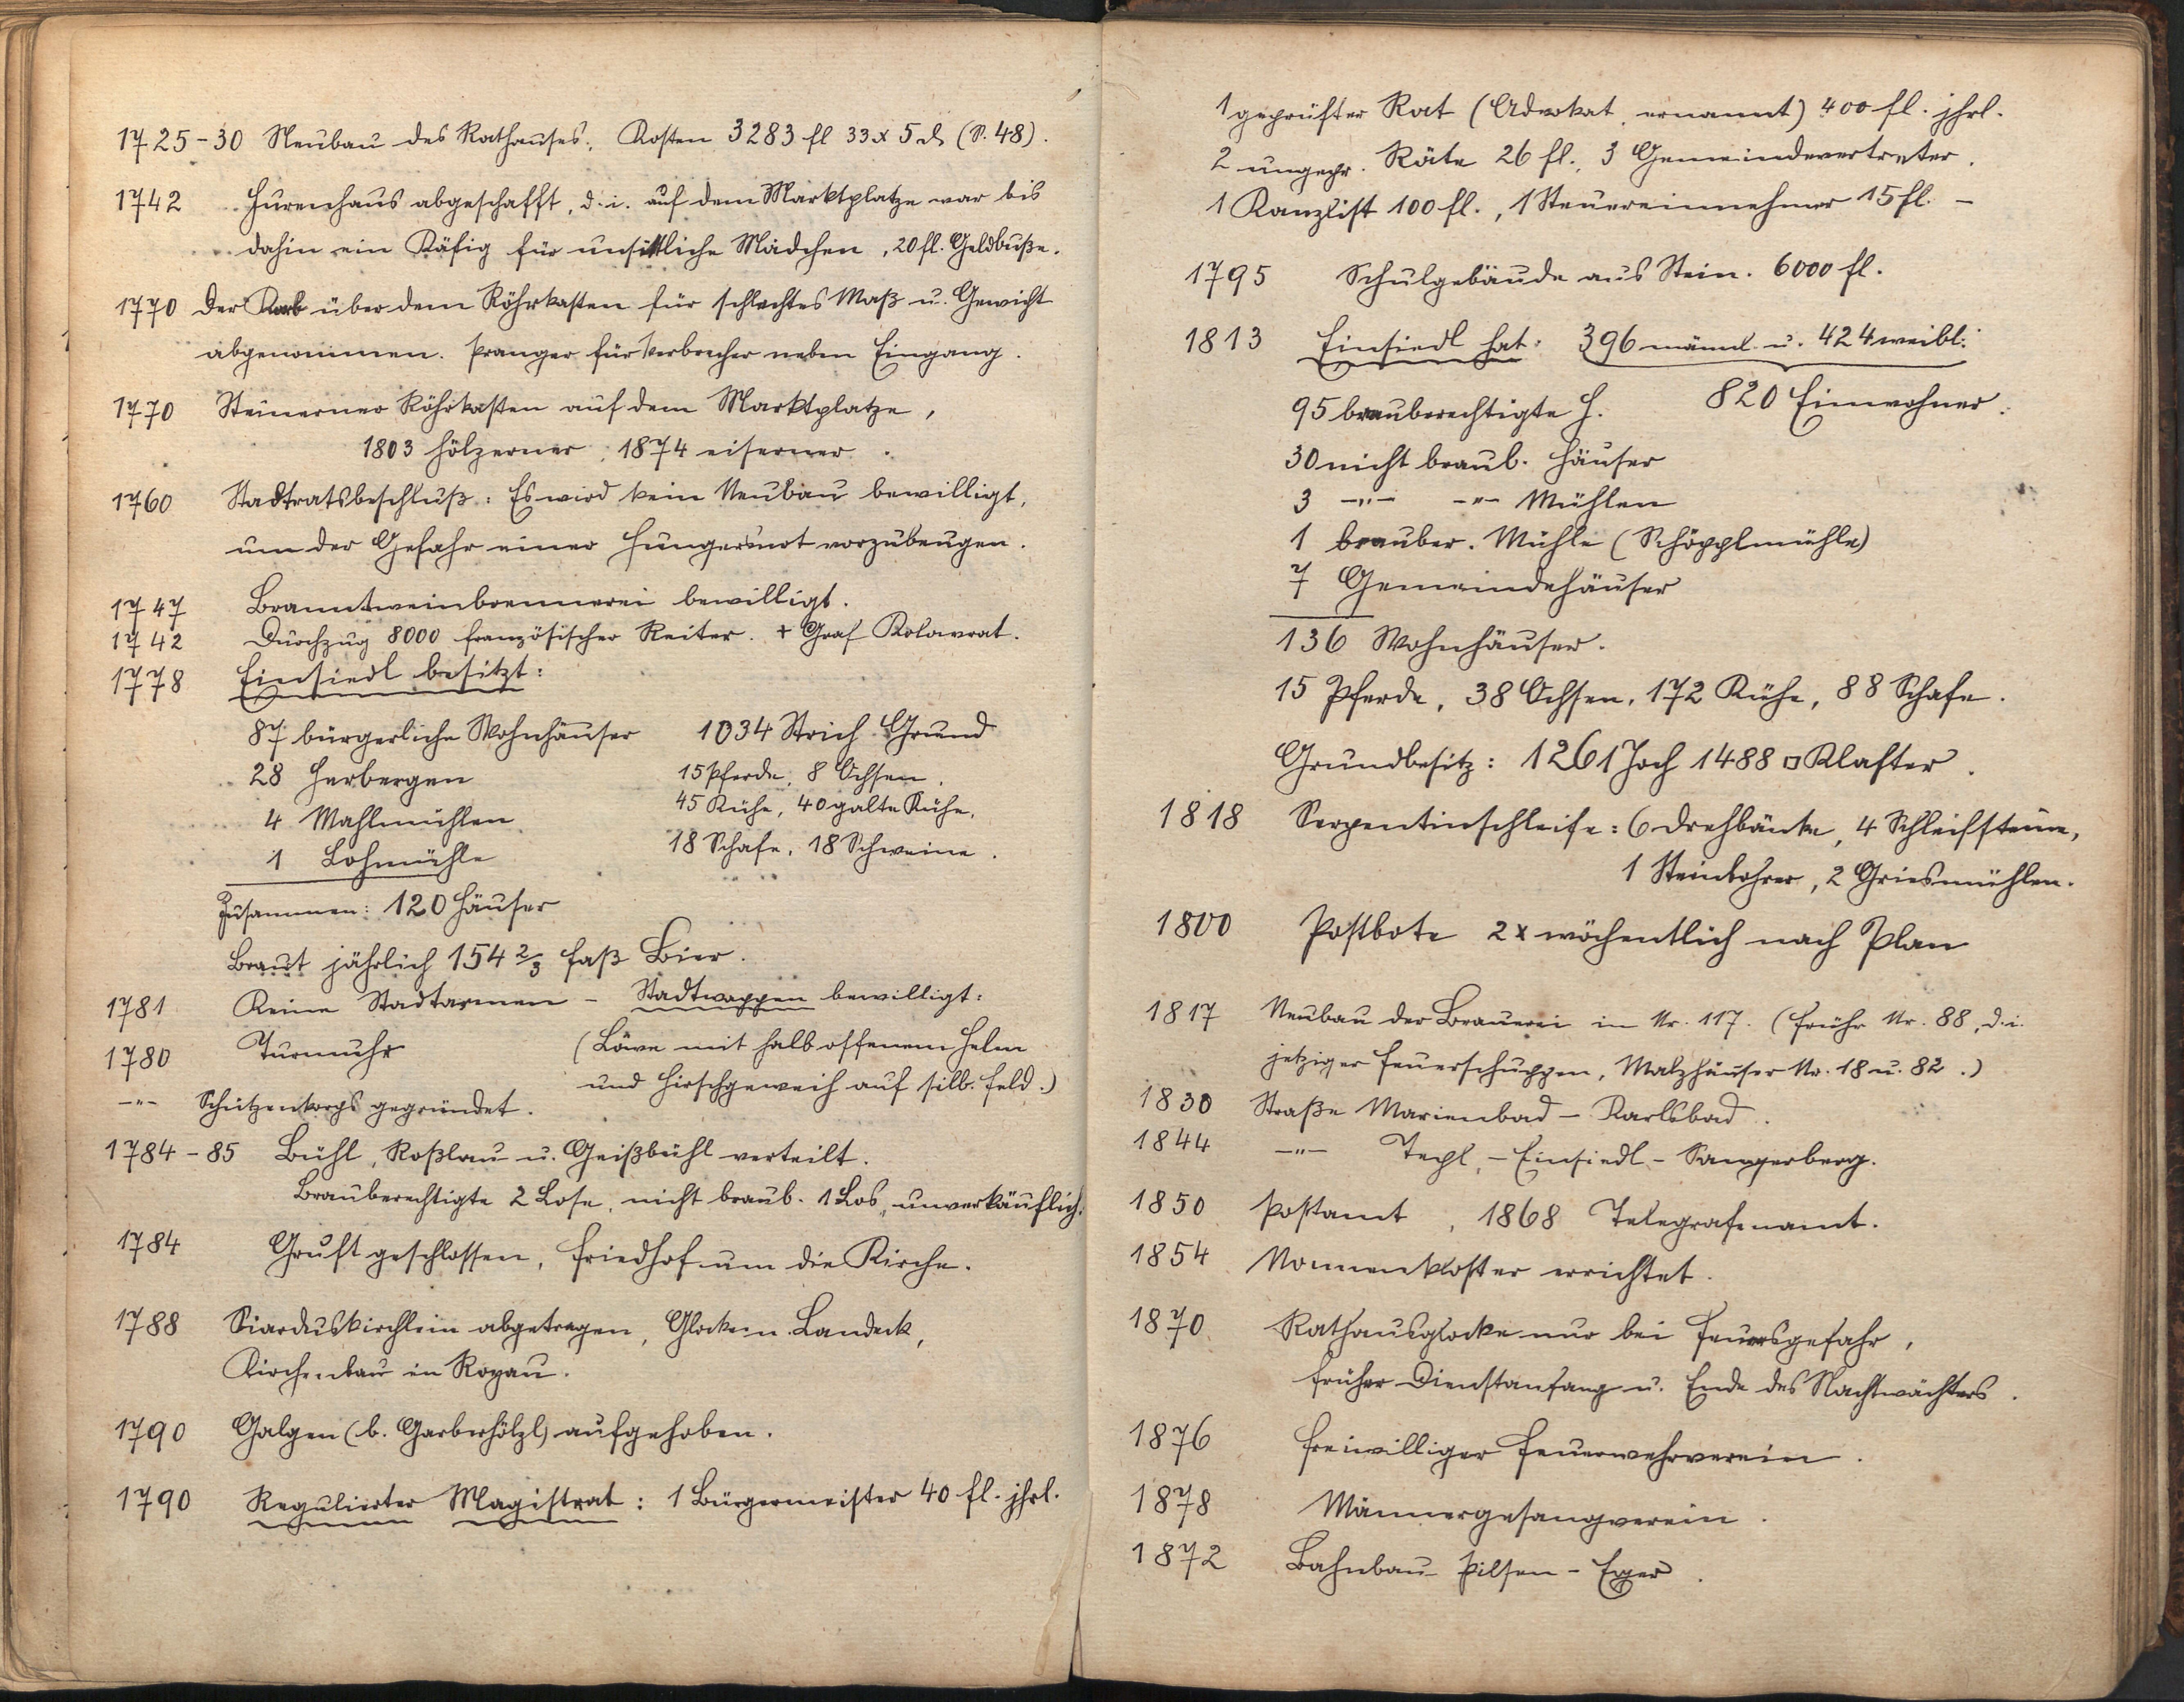 1725-30 Neubau des Rathauses. Kosten 3283 fl 33 x 5 ₰ (S. 48).
1742 Hurenhaus abgeschafft, d. i. auf dem Marktplatze war bis
dahin ein Käfig für unsittliche Mädchen, 20 fl. Geldbuße.
1770 Der Korb über dem Röhrkasten für schlechtes Maß u. Gewicht
abgenommen. Pranger für Verbrecher neben Eingang.
1770 Steinerner Röhrkasten auf dem Marktplatze,
1803 hölzerner, 1874 eiserner.
1760 Stadtratsbeschluß: Es wird kein Neubau bewilligt,
um der Gefahr einer Hungersnot vorzubeugen.
1747 Branntweinbrennerei bewilligt.
1742 Durchzug 8000 französischer Reiter. + Graf Kolowrat.
1778 Einsiedl besitzt:
87 bürgerliche Wohnhäuser 1034 Strich Grund
28 Herbergen 15 Pferde, 8 Ochsen.
4 Mahlmühlen 45 Kühe, 40 galte Kühe,
1 Lohmühle 18 Schafe, 18 Schweine.
Zusammen: 120 Häuser
Braut jährlich 154 2/3 Faß Bier.
1781 Keine Stadtarmen - Stadtwappen bewilligt:
1780 Turmuhr (Löwe mit halb offenem Helm
und Hirschgeweih auf silb. Feld.)
-"- Schützenkorps gegründet.
1784-85 Bühl, Roßlau u. Geißbühl verteilt.
Brauberechtigte 2 Lose, nicht braub. 1 Los, unverkäuflich.
1784 Gruft geschlossen, Friedhof um die Kirche.
1788 Siarduskirchlein abgetragen, Glocke n. Landeck,
Kirchenbau in Rogau.
1790 Galgen (b. Garberhölzl) aufgehoben.
1790 Regulierter Magistrat: 1 Bürgermeister 40 fl. jhrl.
1 geprüfter Rat (Advokat, ernannt) 400 fl. jhrl.
2 ungepr. Räte 26 fl., 3 Gemeindevertreter.
1 Kanzlist 100 fl., 1 Steuereinnehmer 15 fl. -
1795 Schulgebäude aus Stein. 6000 fl.
1813 Einsiedl hat: 396 männl. u. 424 weibl.
95 brauberechtigte H. 820 Einwohner.
30 nicht braub. Häuser
3 -"- -"- Mühlen
1 brauber. Mühle (Schöpplmühle)
7 Gemeindehäuser
136 Wohnhäuser.
15 Pferde, 38 Ochsen, 172 Kühe, 88 Schafe.
Grundbesitz: 1261 Joch 1488 □ Klafter.
1818 Serpentinschleife: 6 Drehbänke, 4 Schleifsteine,
1 Steinbohrer, 2 Griesmühlen.
1800 Postbote 2x wöchentlich nach Plan
1817 Neubau der Brauerei in Nr. 117. (früher Nr. 88, d. i.
jetziger Feuerschuppen, Malzhäuser Nr. 18 u. 82.)
1830 Straße Marienbad - Karlsbad.
1844 -"- Tepl, - Einsiedl - Sangerberg.
1850 Postamt, 1868 Telegrafenamt.
1854 Nonnenkloster errichtet.
1870 Rathausglocke nur bei Feuersgefahr,
früher Dienstanfang u. Ende des Nachtwächters.
1876 Freiwilliger Feuerwehrverein.
1878 Männergesangverein.
1872 Bahnbau Pilsen - Eger.